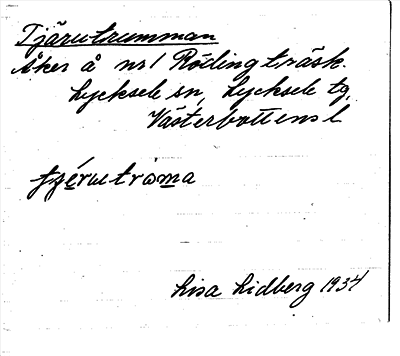 Tjärutrumman
Åker å nr 1 Rödingträsk.
Lycksele sn, Lycksele tg,
Västerbottens l
tjérutròma
Lisa Lidberg 1934